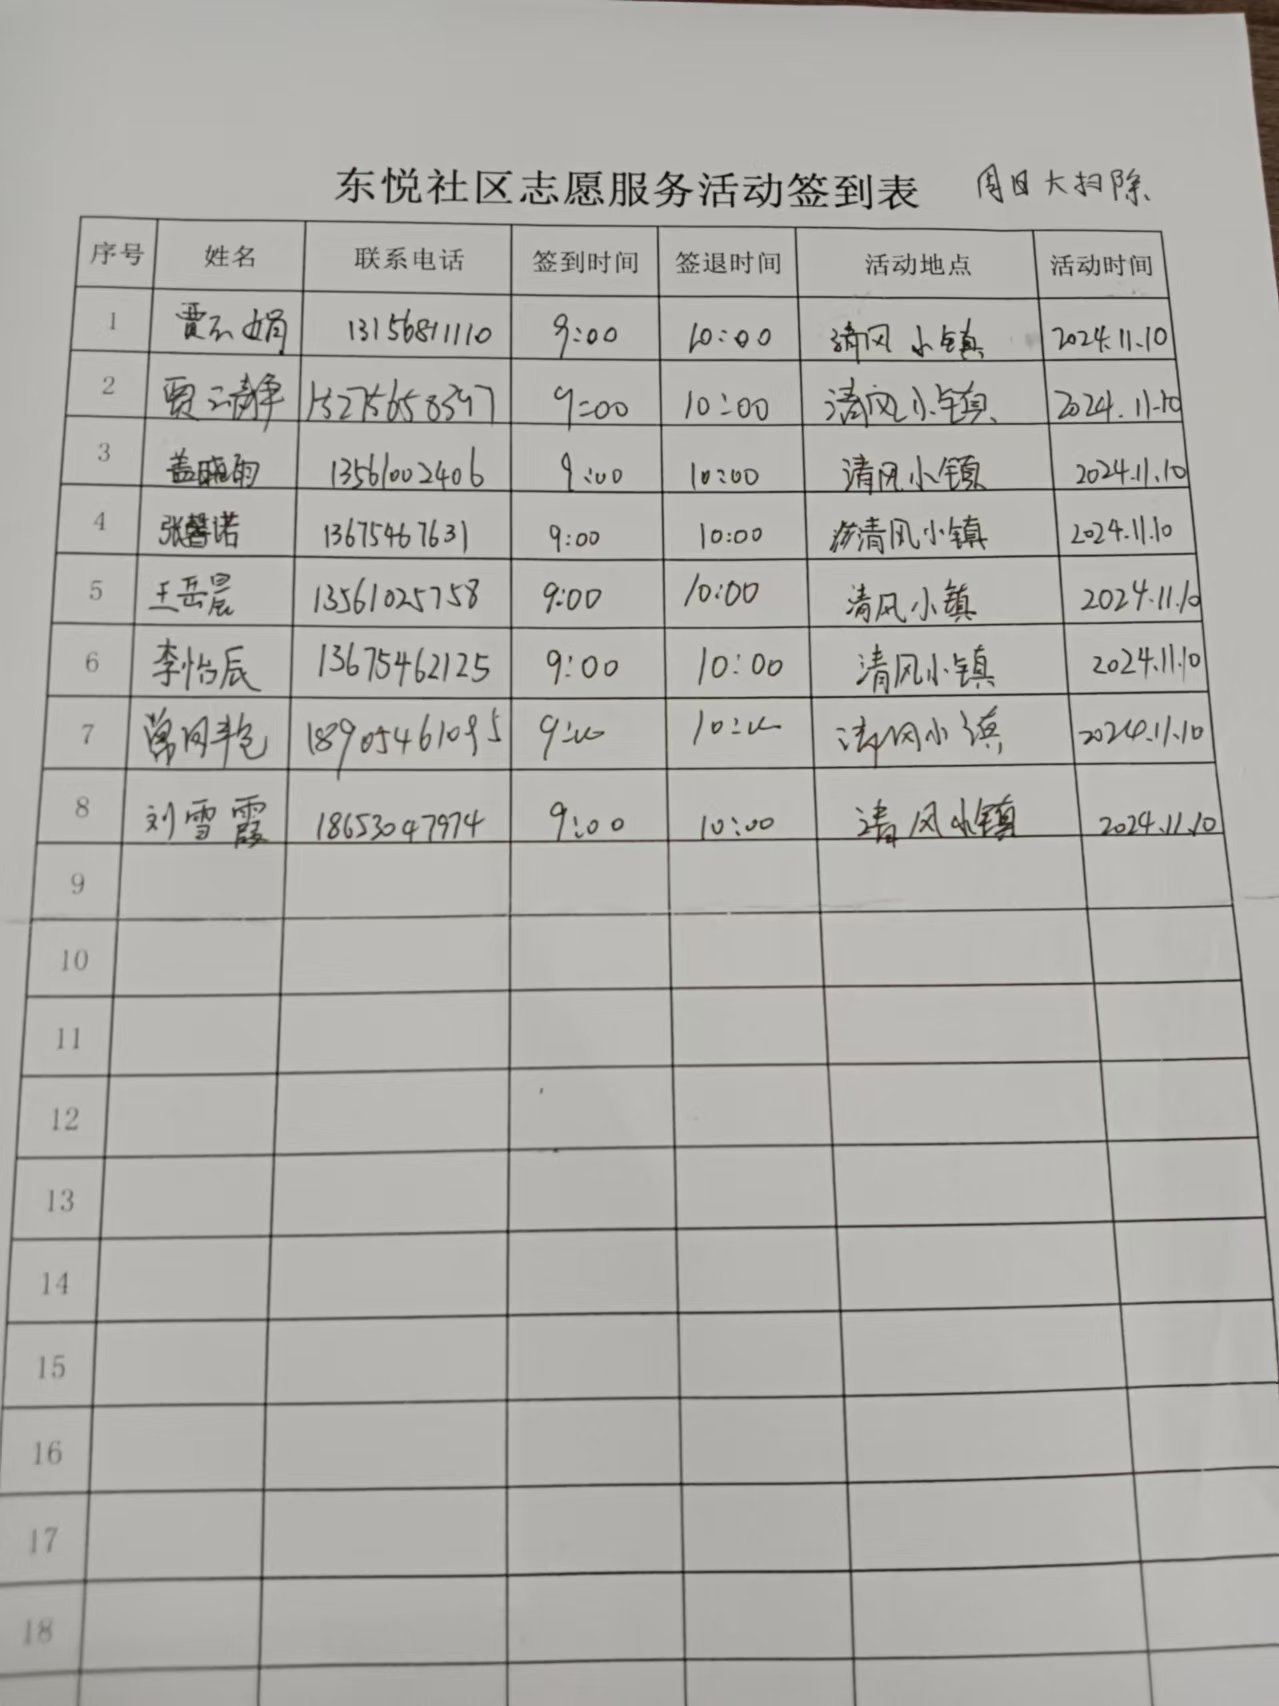 东悦社区志愿服务活动签到表 周日大扫除
序号 姓名 联系电话 签到时间 签退时间 活动地点 活动时间
1 贾云娟 13156811110 9:00 10:00 清风小镇 2024.11.10
2 贾云静 15275658397 9:00 10:00 清风小镇 2024.11.10
3 盖晓雨 13561002406 9:00 10:00 清风小镇 2024.11.10
4 张馨诺 13675467631 9:00 10:00 清风小镇 2024.11.10
5 王岳晨 13561025758 9:00 10:00 清风小镇 2024.11.10
6 李怡辰 13675462125 9:00 10:00 清风小镇 2024.11.10
7 18905461095 9:00 10:00 清风小镇 2024.11.10
8 刘雪霞 18653047974 9:00 10:00 清风小镇 2024.11.10
9
10
11
12
13
14
15
16
17
18